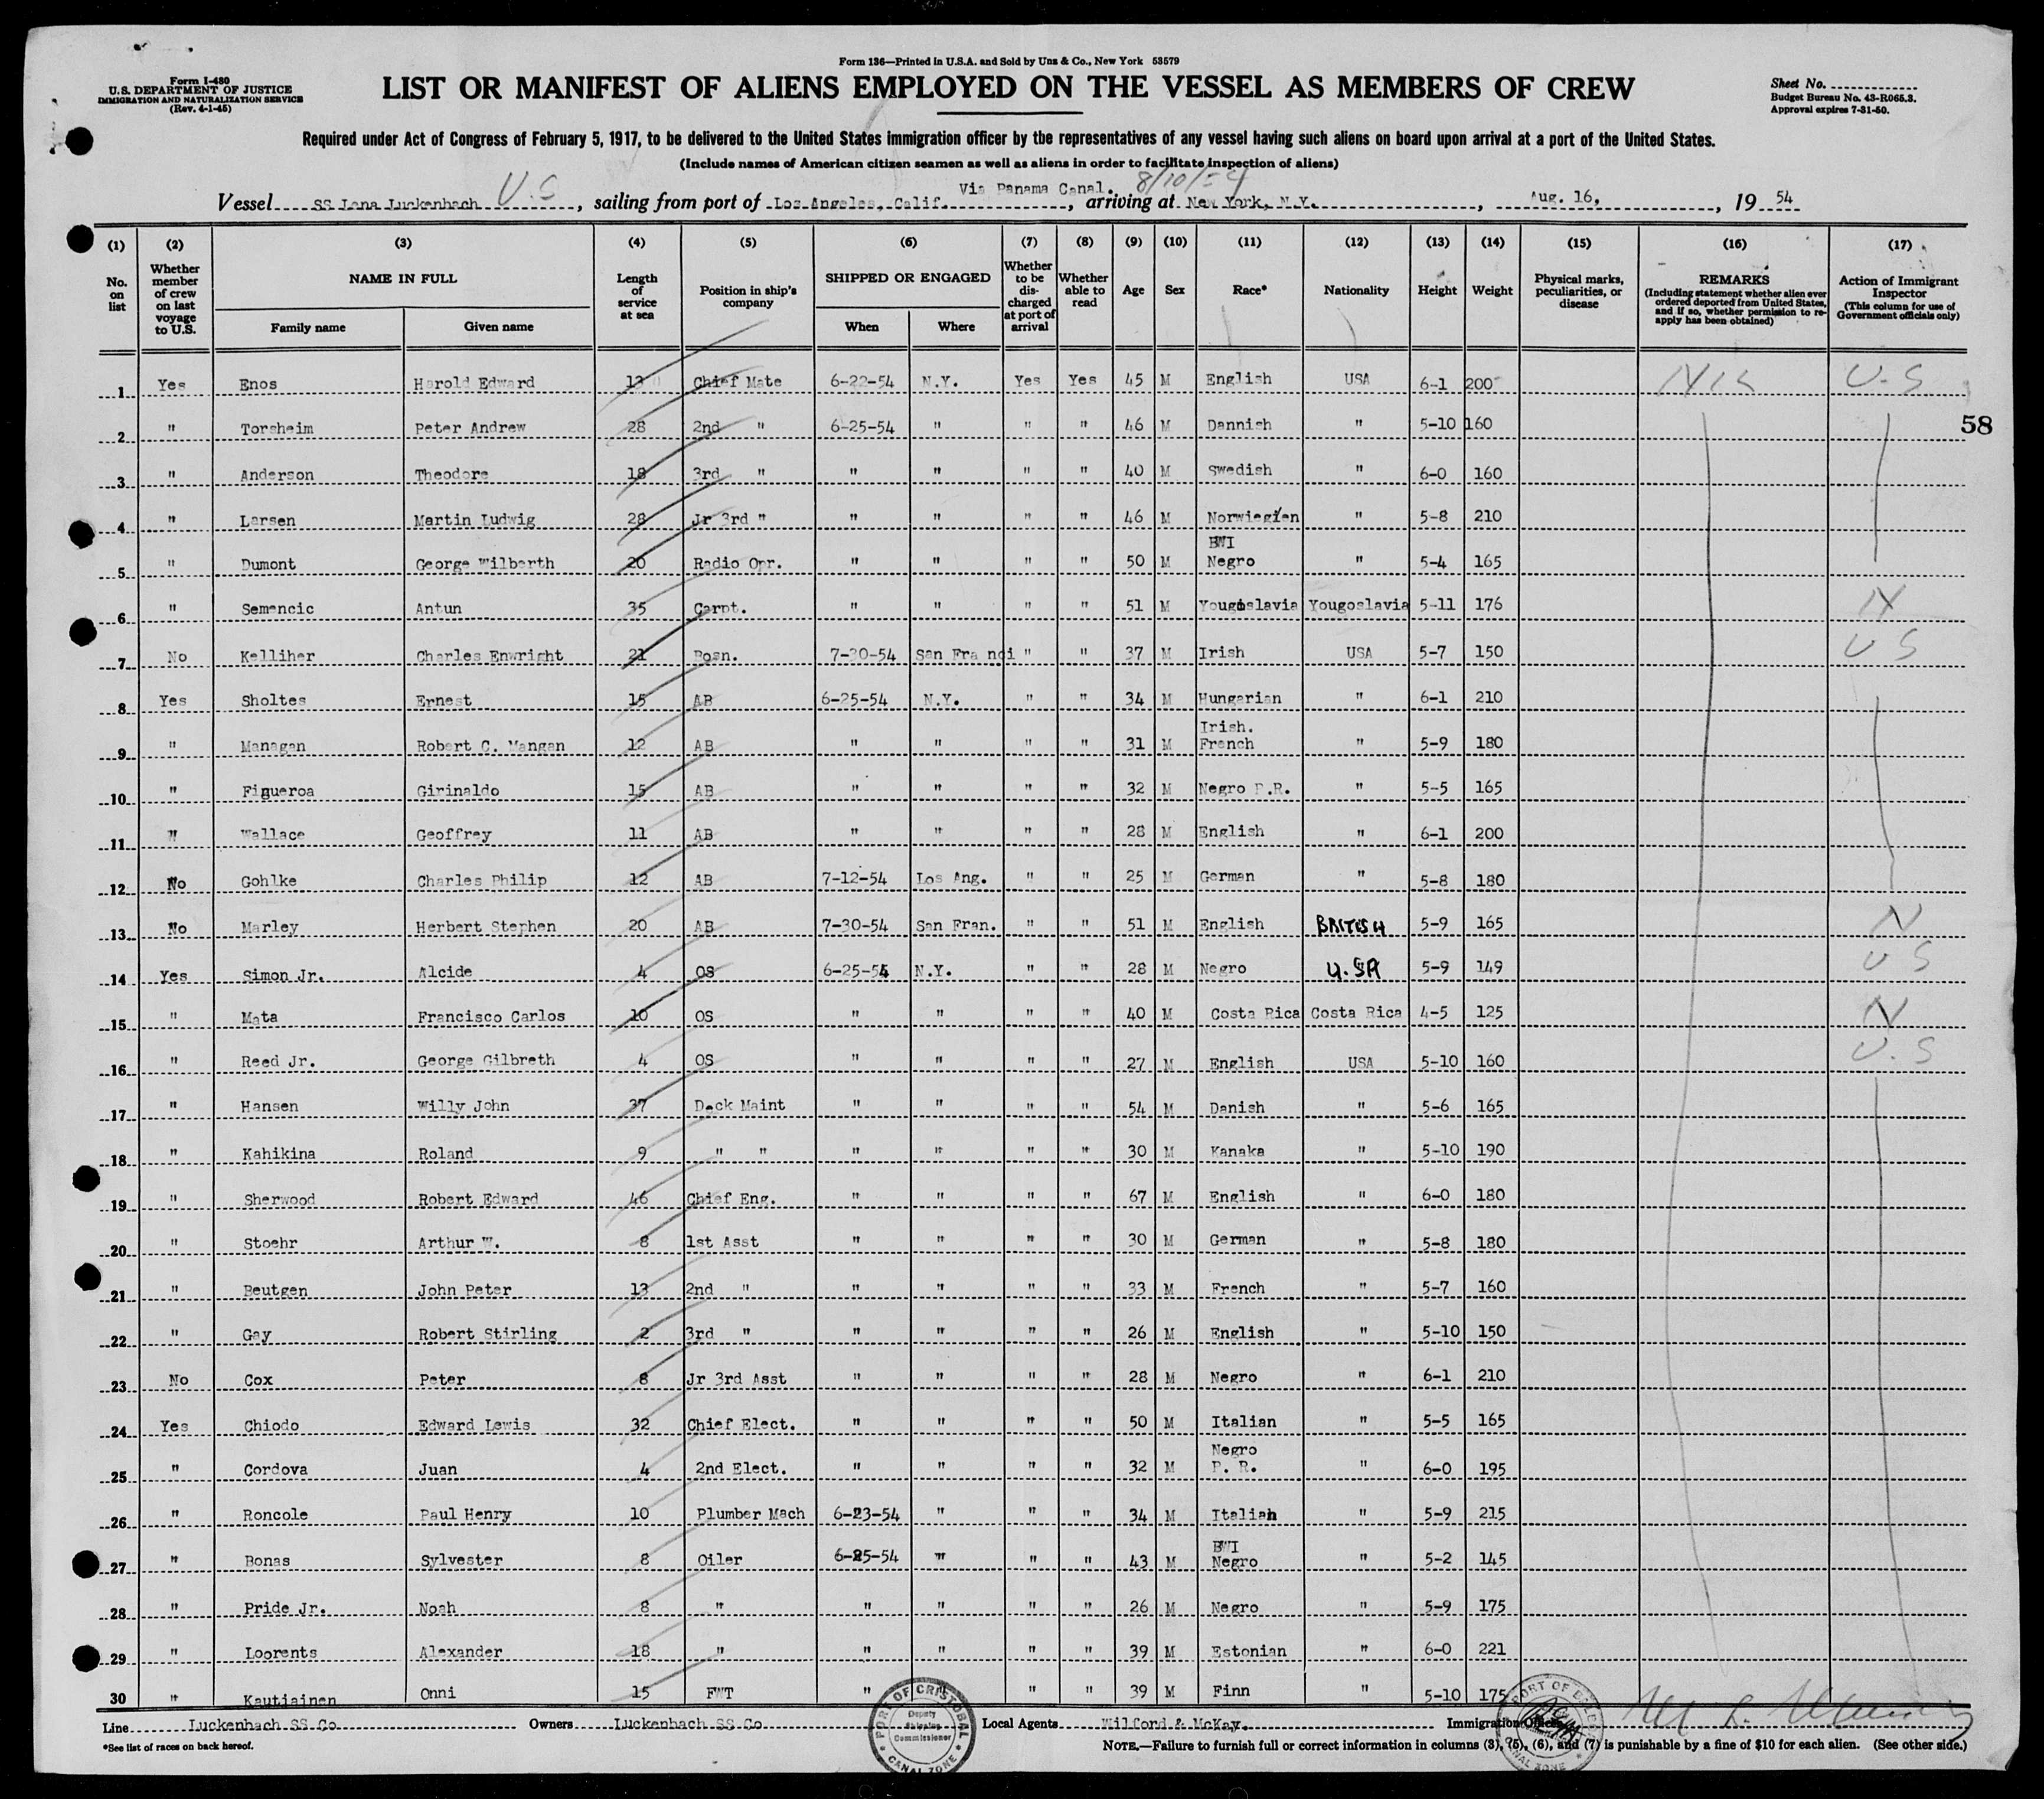 Form 136—Printed in U.S.A. and Sold by Unz & Co., New York 53579
Form I-480
U.S. DEPARTMENT OF JUSTICE
IMMIGRATION AND NATURALIZATION SERVICE
(Rev. 4-1-45)
LIST OR MANIFEST OF ALIENS EMPLOYED ON THE VESSEL AS MEMBERS OF CREW
Sheet No.
Budget Bureau No. 43-R065.3.
Approval expires 7-31-50.
Required under Act of Congress of February 5, 1917, to be delivered to the United States immigration officer by the representatives of any vessel having such aliens on board upon arrival at a port of the United States.
(Include names of American citizen seamen as well as aliens in order to facilitate inspection of aliens)
Via Panama Canal. 8/10/54
Vessel SS Lena Luckenbach U.S, sailing from port of Los Angeles, Calif., arriving at New York, N.Y., Aug. 16, 19 54
(1) (2) (3) (4) (5) (6) (7) (8) (9) (10) (11) (12) (13) (14) (15) (16) (17)
No. on list
Whether member of crew on last voyage to U.S.
NAME IN FULL
Family name Given name
Length of service at sea
Position in ship's company
SHIPPED OR ENGAGED
When Where
Whether to be discharged at port of arrival
Whether able to read
Age Sex Race* Nationality Height Weight
Physical marks, peculiarities, or disease
REMARKS
(Including statement whether alien ever ordered deported from United States, and if so, whether permission to re-apply has been obtained)
Action of Immigrant Inspector
(This column for use of Government officials only)
1 Yes Enos Harold Edward 13 Chief Mate 6-22-54 N.Y. Yes Yes 45 M English USA 6-1 200 U.S
58
2 " Torsheim Peter Andrew 28 2nd " 6-25-54 " " " 46 M Dannish " 5-10 160
3 " Anderson Theodore 18 3rd " " " " " 40 M Swedish " 6-0 160
4 " Larsen Martin Ludwig 28 Jr 3rd " " " " " 46 M Norwiegian " 5-8 210
5 " Dumont George Wilberth 20 Radio Opr. " " " " 50 M BWI Negro " 5-4 165
6 " Semencic Antun 35 Carpt. " " " " 51 M Yougoslavia Yougoslavia 5-11 176 N
7 No Kelliher Charles Enwright 21 Bosn. 7-30-54 San Franci " " 37 M Irish USA 5-7 150 U S
8 Yes Sholtes Ernest 15 AB 6-25-54 N.Y. " " 34 M Hungarian " 6-1 210
9 " Managan Robert C. Mangan 12 AB " " " " 31 M Irish. French " 5-9 180
10 " Figueroa Girinaldo 15 AB " " " " 32 M Negro P.R. " 5-5 165
11 " Wallace Geoffrey 11 AB " " " " 28 M English " 6-1 200
12 No Gohlke Charles Philip 12 AB 7-12-54 Los Ang. " " 25 M German " 5-8 180
13 No Marley Herbert Stephen 20 AB 7-30-54 San Fran. " " 51 M English BRITISH 5-9 165 N
14 Yes Simon Jr. Alcide 4 OS 6-25-54 N.Y. " " 28 M Negro U.SA 5-9 149 U S
15 " Mata Francisco Carlos 10 OS " " " " 40 M Costa Rica Costa Rica 4-5 125 N
16 " Reed Jr. George Gilbreth 4 OS " " " " 27 M English USA 5-10 160 U.S
17 " Hansen Willy John 37 Deck Maint " " " " 54 M Danish " 5-6 165
18 " Kahikina Roland 9 " " " " " " 30 M Kanaka " 5-10 190
19 " Sherwood Robert Edward 46 Chief Eng. " " " " 67 M English " 6-0 180
20 " Stoehr Arthur W. 8 1st Asst " " " " 30 M German " 5-8 180
21 " Beutgen John Peter 13 2nd " " " " " 33 M French " 5-7 160
22 " Gay Robert Stirling 2 3rd " " " " " 26 M English " 5-10 150
23 No Cox Peter 8 Jr 3rd Asst " " " " 28 M Negro " 6-1 210
24 Yes Chiodo Edward Lewis 32 Chief Elect. " " " " 50 M Italian " 5-5 165
25 " Cordova Juan 4 2nd Elect. " " " " 32 M Negro P. R. " 6-0 195
26 " Roncole Paul Henry 10 Plumber Mach 6-23-54 " " " 34 M Italian " 5-9 215
27 " Bonas Sylvester 8 Oiler 6-25-54 " " " 43 M BWI Negro " 5-2 145
28 " Pride Jr. Noah 8 " " " " " 26 M Negro " 5-9 175
29 " Loorents Alexander 18 " " " " " 39 M Estonian " 6-0 221
30 " Kautiainen Onni 15 FWT " " " " 39 M Finn " 5-10 175
Line Luckenbach SS Co Owners Luckenbach SS Co Local Agents Wilford & McKay. Immigration Officer
PORT OF CRISTOBAL
Deputy Shipping Commissioner
CANAL ZONE
*See list of races on back hereof.
NOTE.—Failure to furnish full or correct information in columns (3), (5), (6), and (7) is punishable by a fine of $10 for each alien. (See other side.)